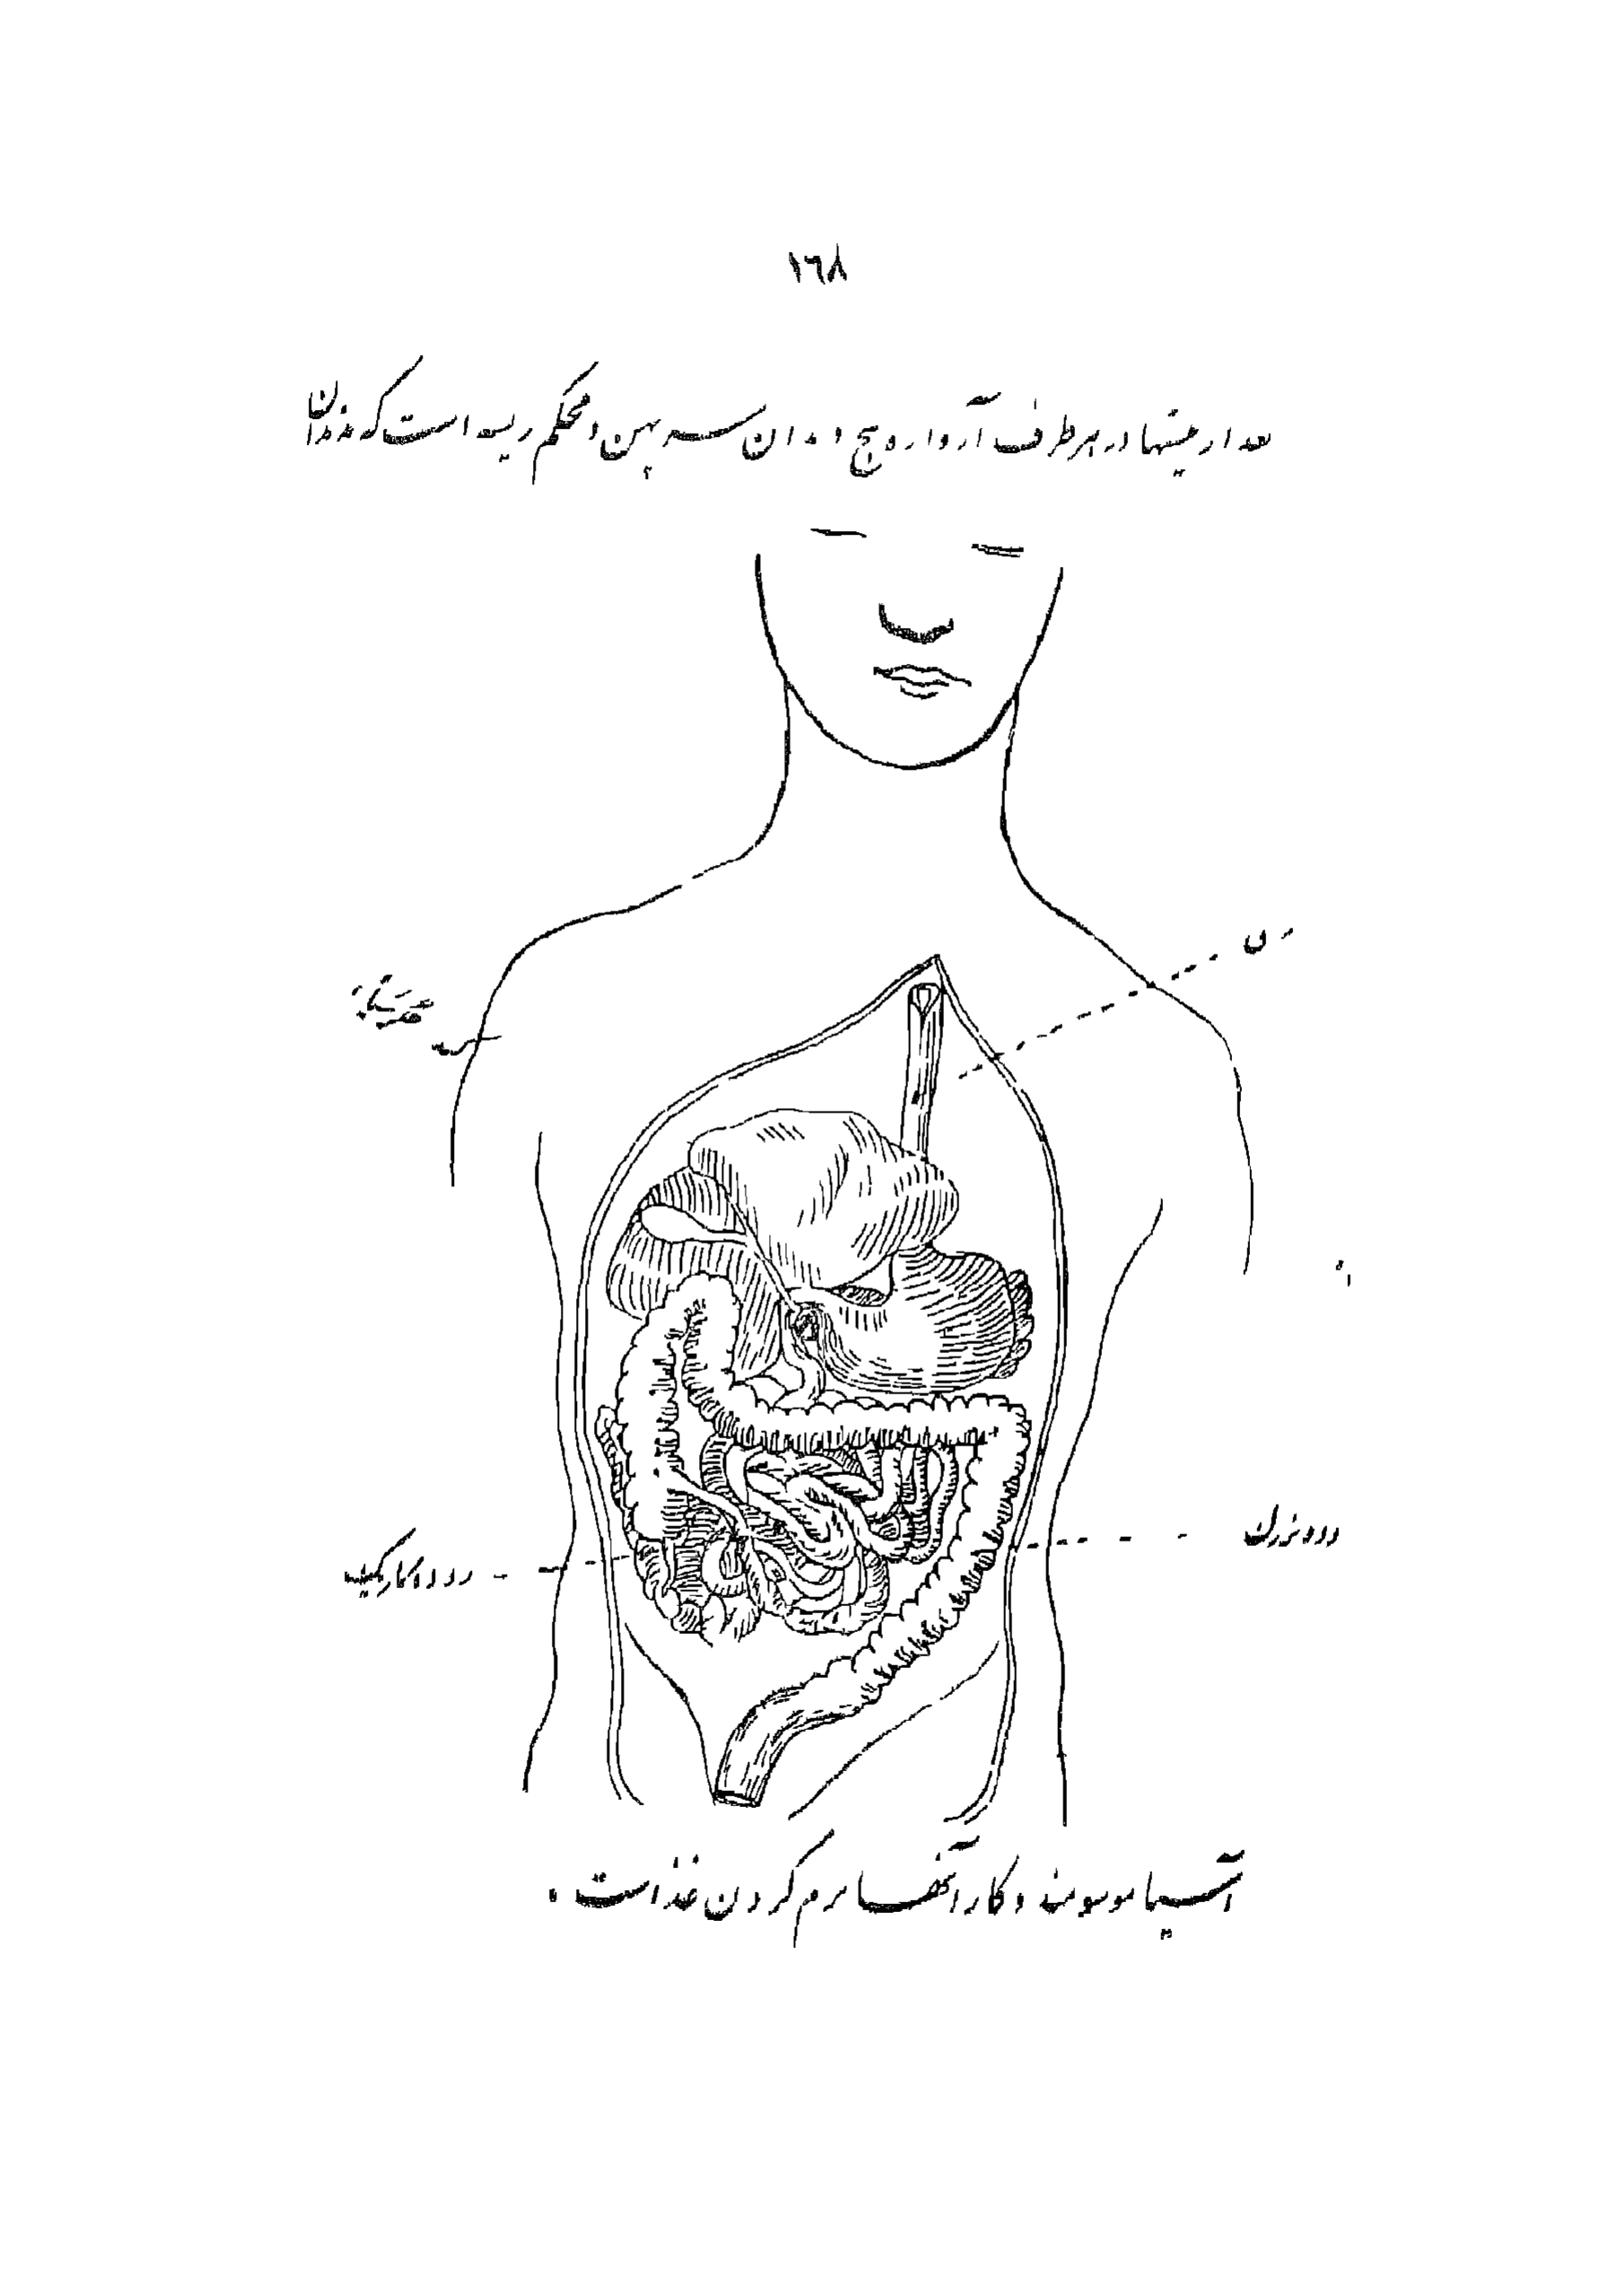 ١٦٨
بعد از نیشها در هر طرف آرواره پنج دندان سر پهن و محکم ریشه است که دندان
روده بزرگ
روده باریک
آسیا موسومند و کار آنها نرم کردن غذاست .